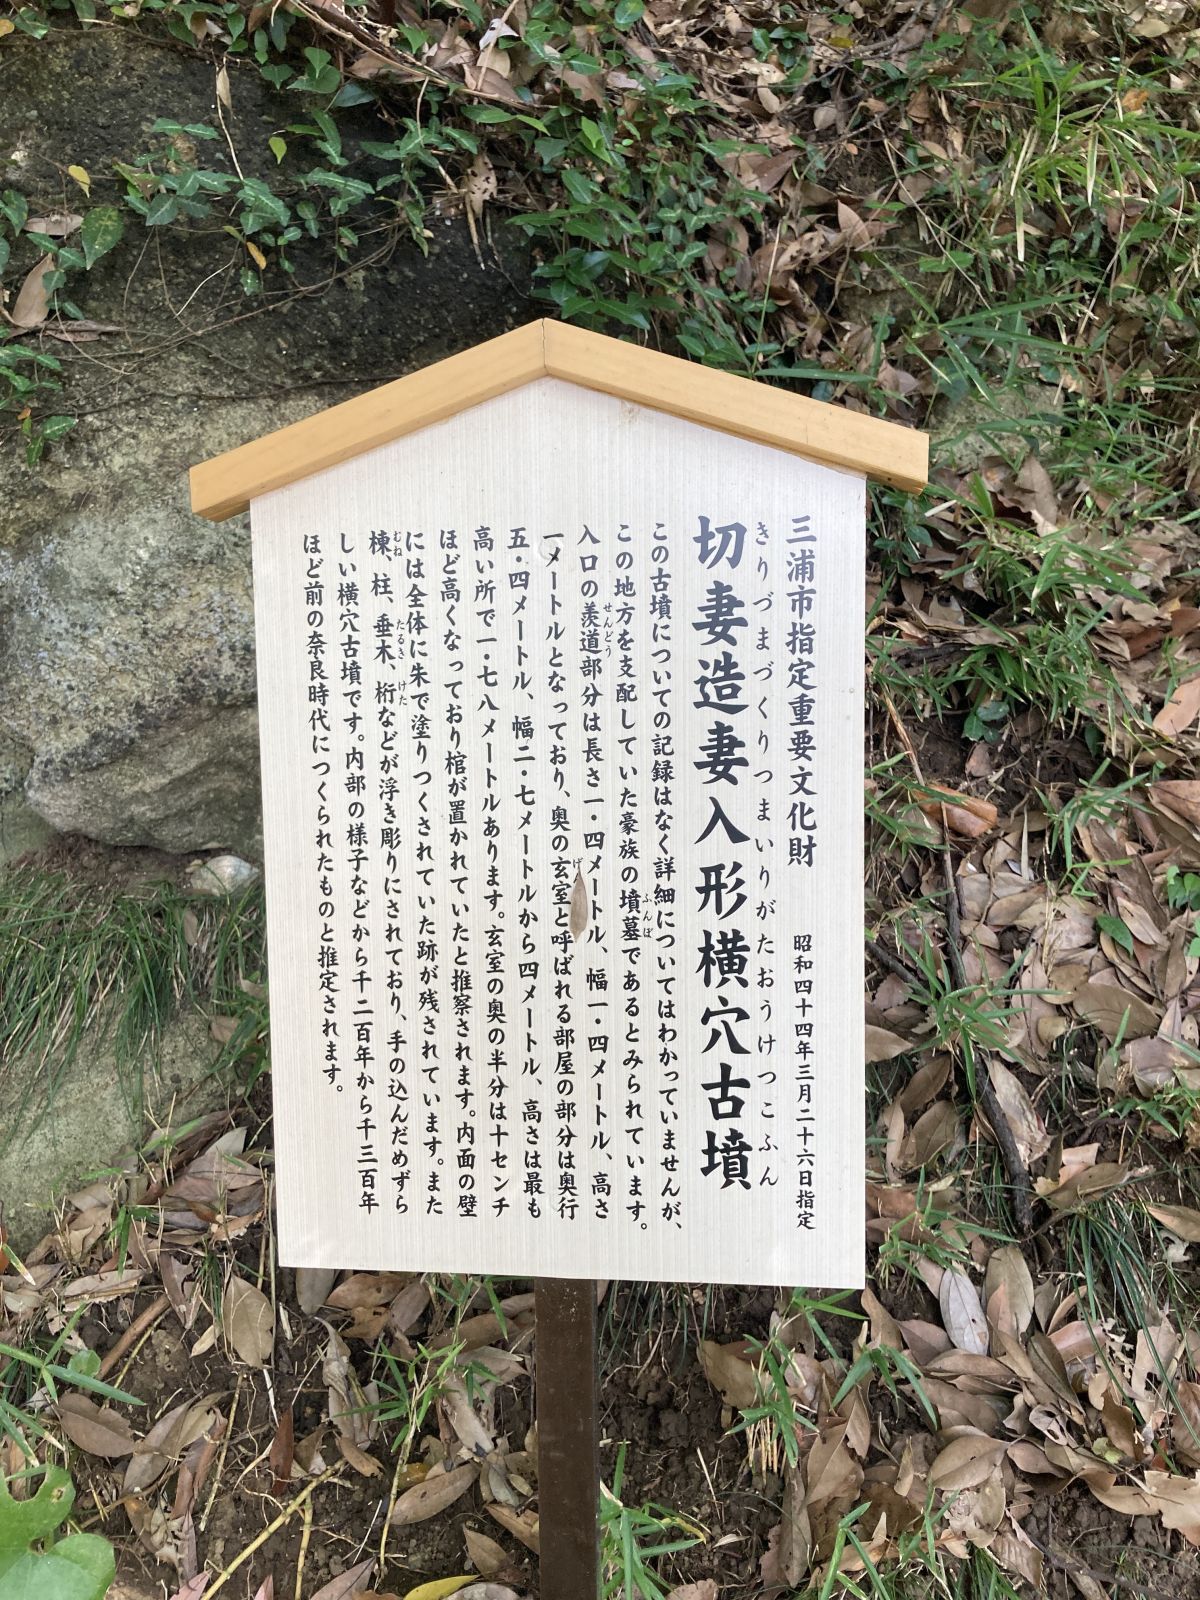 三浦市指定重要文化財　昭和四十四年三月二十六日指定
きりづまづくりつまいりがたおうけつこふん
切妻造妻入形横穴古墳
この古墳についての記録はなく詳細についてはわかっていませんが、
この地方を支配していた豪族の墳墓であるとみられています。
入口の羨道部分は長さ一・四メートル、幅一・四メートル、高さ
一メートルとなっており、奥の玄室と呼ばれる部屋の部分は奥行
五・四メートル、幅二・七メートルから四メートル、高さは最も
高い所で一・七八メートルあります。玄室の奥の半分は十センチ
ほど高くなっており棺が置かれていたと推察されます。内面の壁
には全体に朱で塗りつくされていた跡が残されています。また
棟、柱、垂木、桁などが浮き彫りにされており、手の込んだめずら
しい横穴古墳です。内部の様子などから千二百年から千三百年
ほど前の奈良時代につくられたものと推定されます。